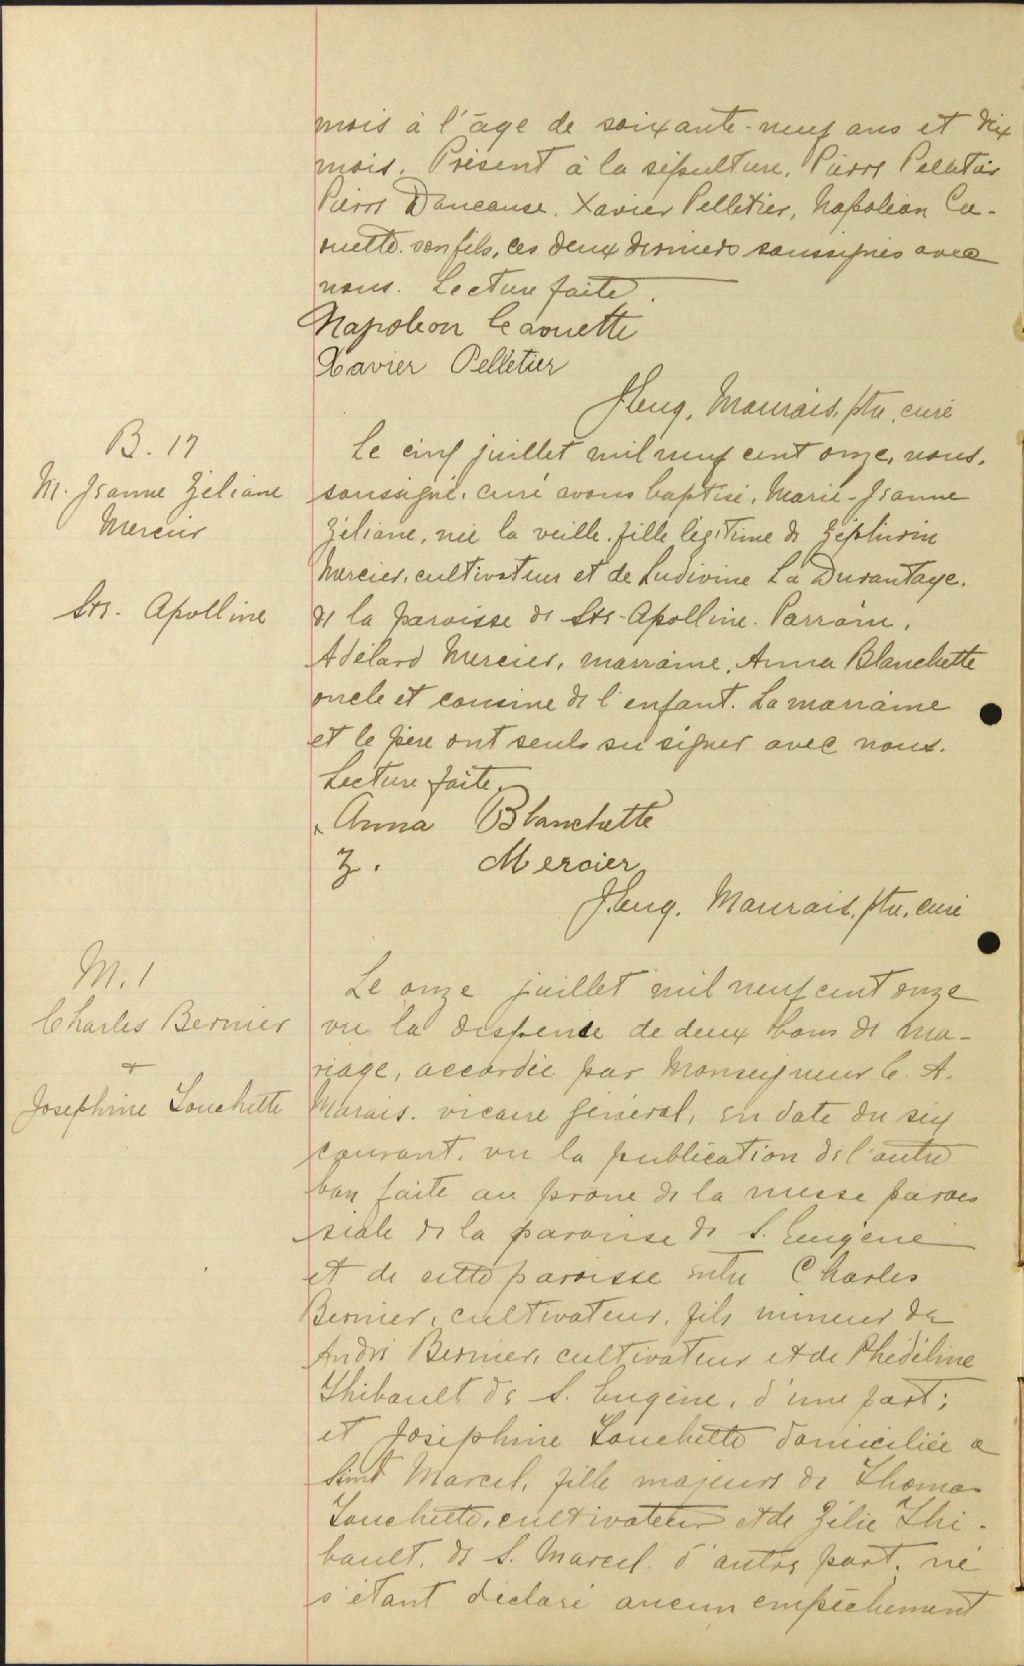 mois à l'âge de soixante-neuf ans et dix
mois. Présent à la sépulture, Pierre Pelletier
Pierre Dancause, Xavier Pelletier, Napoléon Ca-
ouette son fils, ces deux derniers soussignés avec
nous. Lecture faite.
Napoleon Caouette
Xavier Pelletier
J. Eug. Maurais, ptre, curé
B. 17
M. Jeanne Zéliane
Mercier
Ste-Apolline
Le cinq juillet mil neuf cent onze, nous,
soussigné, curé avons baptisé, Marie-Jeanne
Zéliane, née la veille, fille légitime de Zéphirin
Mercier, cultivateur et de Ludivine La Durantaye,
de la paroisse de Ste-Apolline. Parrain,
Adélard Mercier, marraine, Anna Blanchette
oncle et cousine de l'enfant. La marraine
et le père ont seuls su signer avec nous.
Lecture faite.
Anna Blanchette
Z. Mercier
J. Eug. Maurais, ptre, curé
M. 1
Charles Bernier
+
Josephine Touchette
Le onze juillet mil neuf cent onze
vu la dispense de deux bans de ma-
riage, accordée par Monseigneur C. A.
Marais, vicaire général, en date du six
courant, vu la publication de l'autre
ban faite au prone de la messe parois
siale de la paroisse de S. Eugène
et de cette paroisse entre Charles
Bernier, cultivateur, fils mineur de
André Bernier, cultivateur et de Phédéline
Thibault de S. Eugène, d'une part;
et Joséphine Touchette domiciliée a
Saint Marcel, fille majeure de Thomas
Touchette, cultivateur et de Zélie Thi-
bault, de S. Marcel d'autre part, ne
s'étant déclaré aucun empêchement